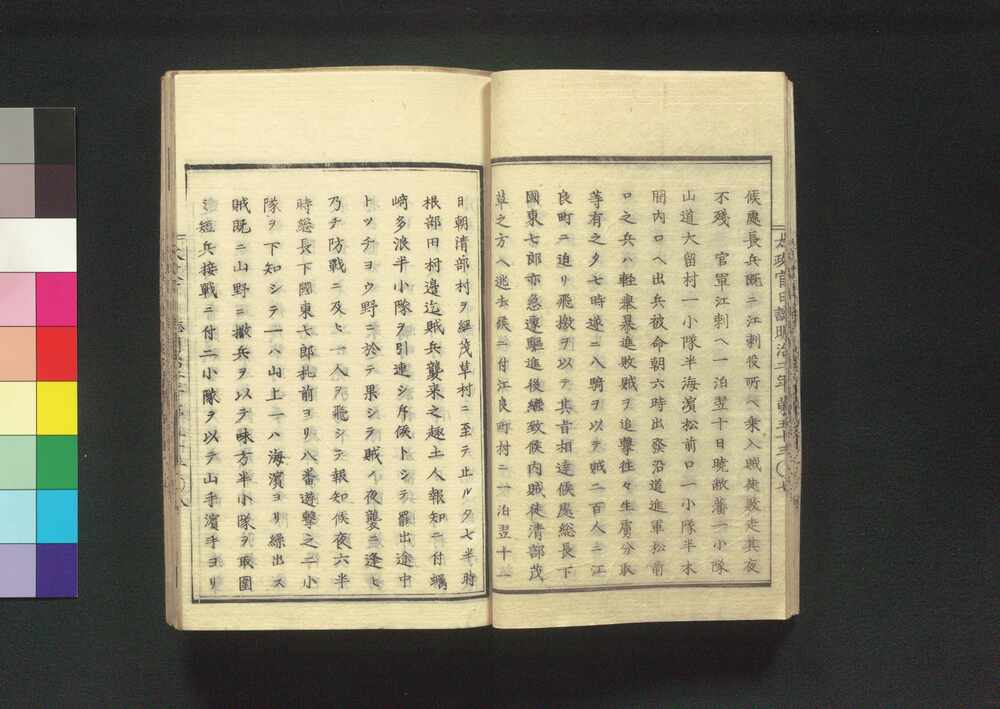 候處長兵既ニ江刺役所ヘ乗入賊徒敗走其夜
不殘　官軍江刺ヘ一泊翌十日曉敝藩一小隊
山道大留村一小隊半海濱松前口一小隊半木
間内口ヘ出兵被命朝六時出發沿道進軍松前
口之兵ハ輕乗暴進敗賊ヲ追撃往々生虜分取
等有之夕七時遂ニ八騎ヲ以テ賊二百人ニ江
良町ニ迫リ飛檄ヲ以テ其旨相達候處総長下
國東七郎亦急遽驅進後繼致候内賊徒清部茂
草之方ヘ逃去候ニ付江良町村ニ一泊翌十一
日朝清部村ヲ經茂草村ニ至テ止ル夕七半時
根部田村邊迄賊兵襲来之趣土人報知ニ付蠣
崎多浪半小隊ヲ引連シ斥候トシテ罷出途中
トツチヨウ野ニ於テ果シテ賊ノ夜襲ニ逢ヒ
乃チ防戰ニ及ヒ一人ヲ飛シテ報知候夜六半
時総長下國東七郎札前ヨリ八番遊撃之二小
隊ヲ下知シテ一ハ山上一ハ海濱ヨリ繰出ス
賊既ニ山野ニ撒兵ヲ以テ味方半小隊ヲ取圍
短兵接戰ニ付二小隊ヲ以テ山手濱手ヨリ